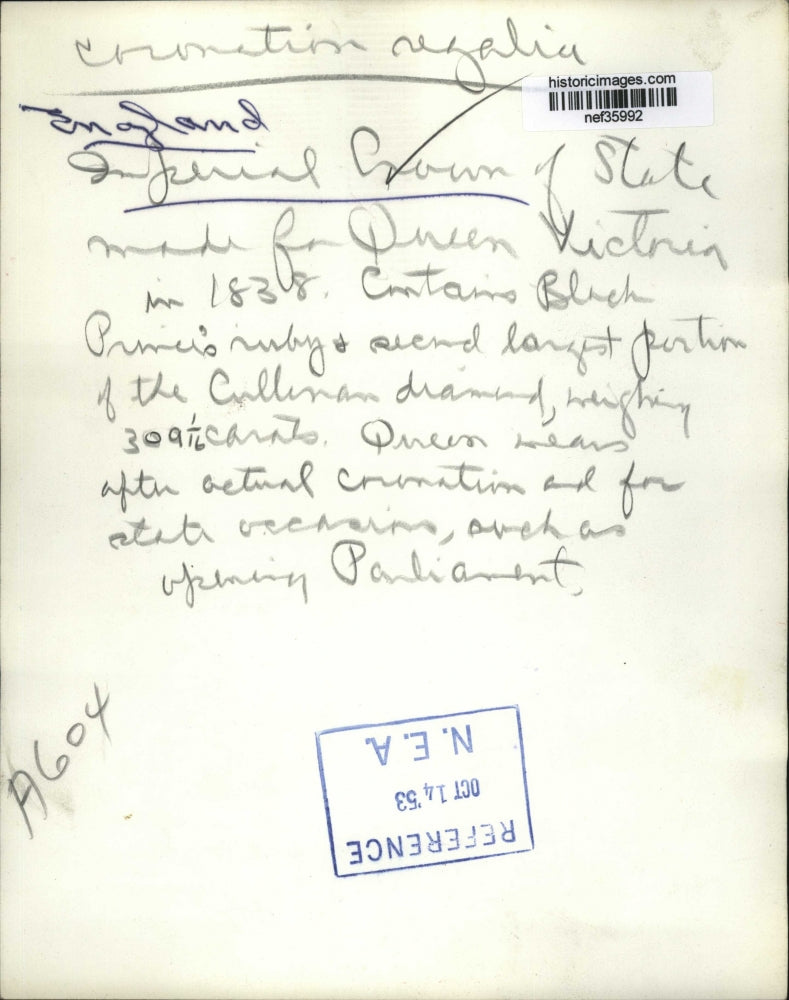 coronation regalia
historicimages.com
nef35992
England
Imperial Crown of State
made for Queen Victoria
in 1838. Contains Black
Prince's ruby & second largest portion
of the Cullinan diamond, weighing
309 1/16 carats. Queen wears
after actual coronation and for
state occasions, such as
opening Parliament.
A604
REFERENCE
OCT 14 '53
N.E.A.